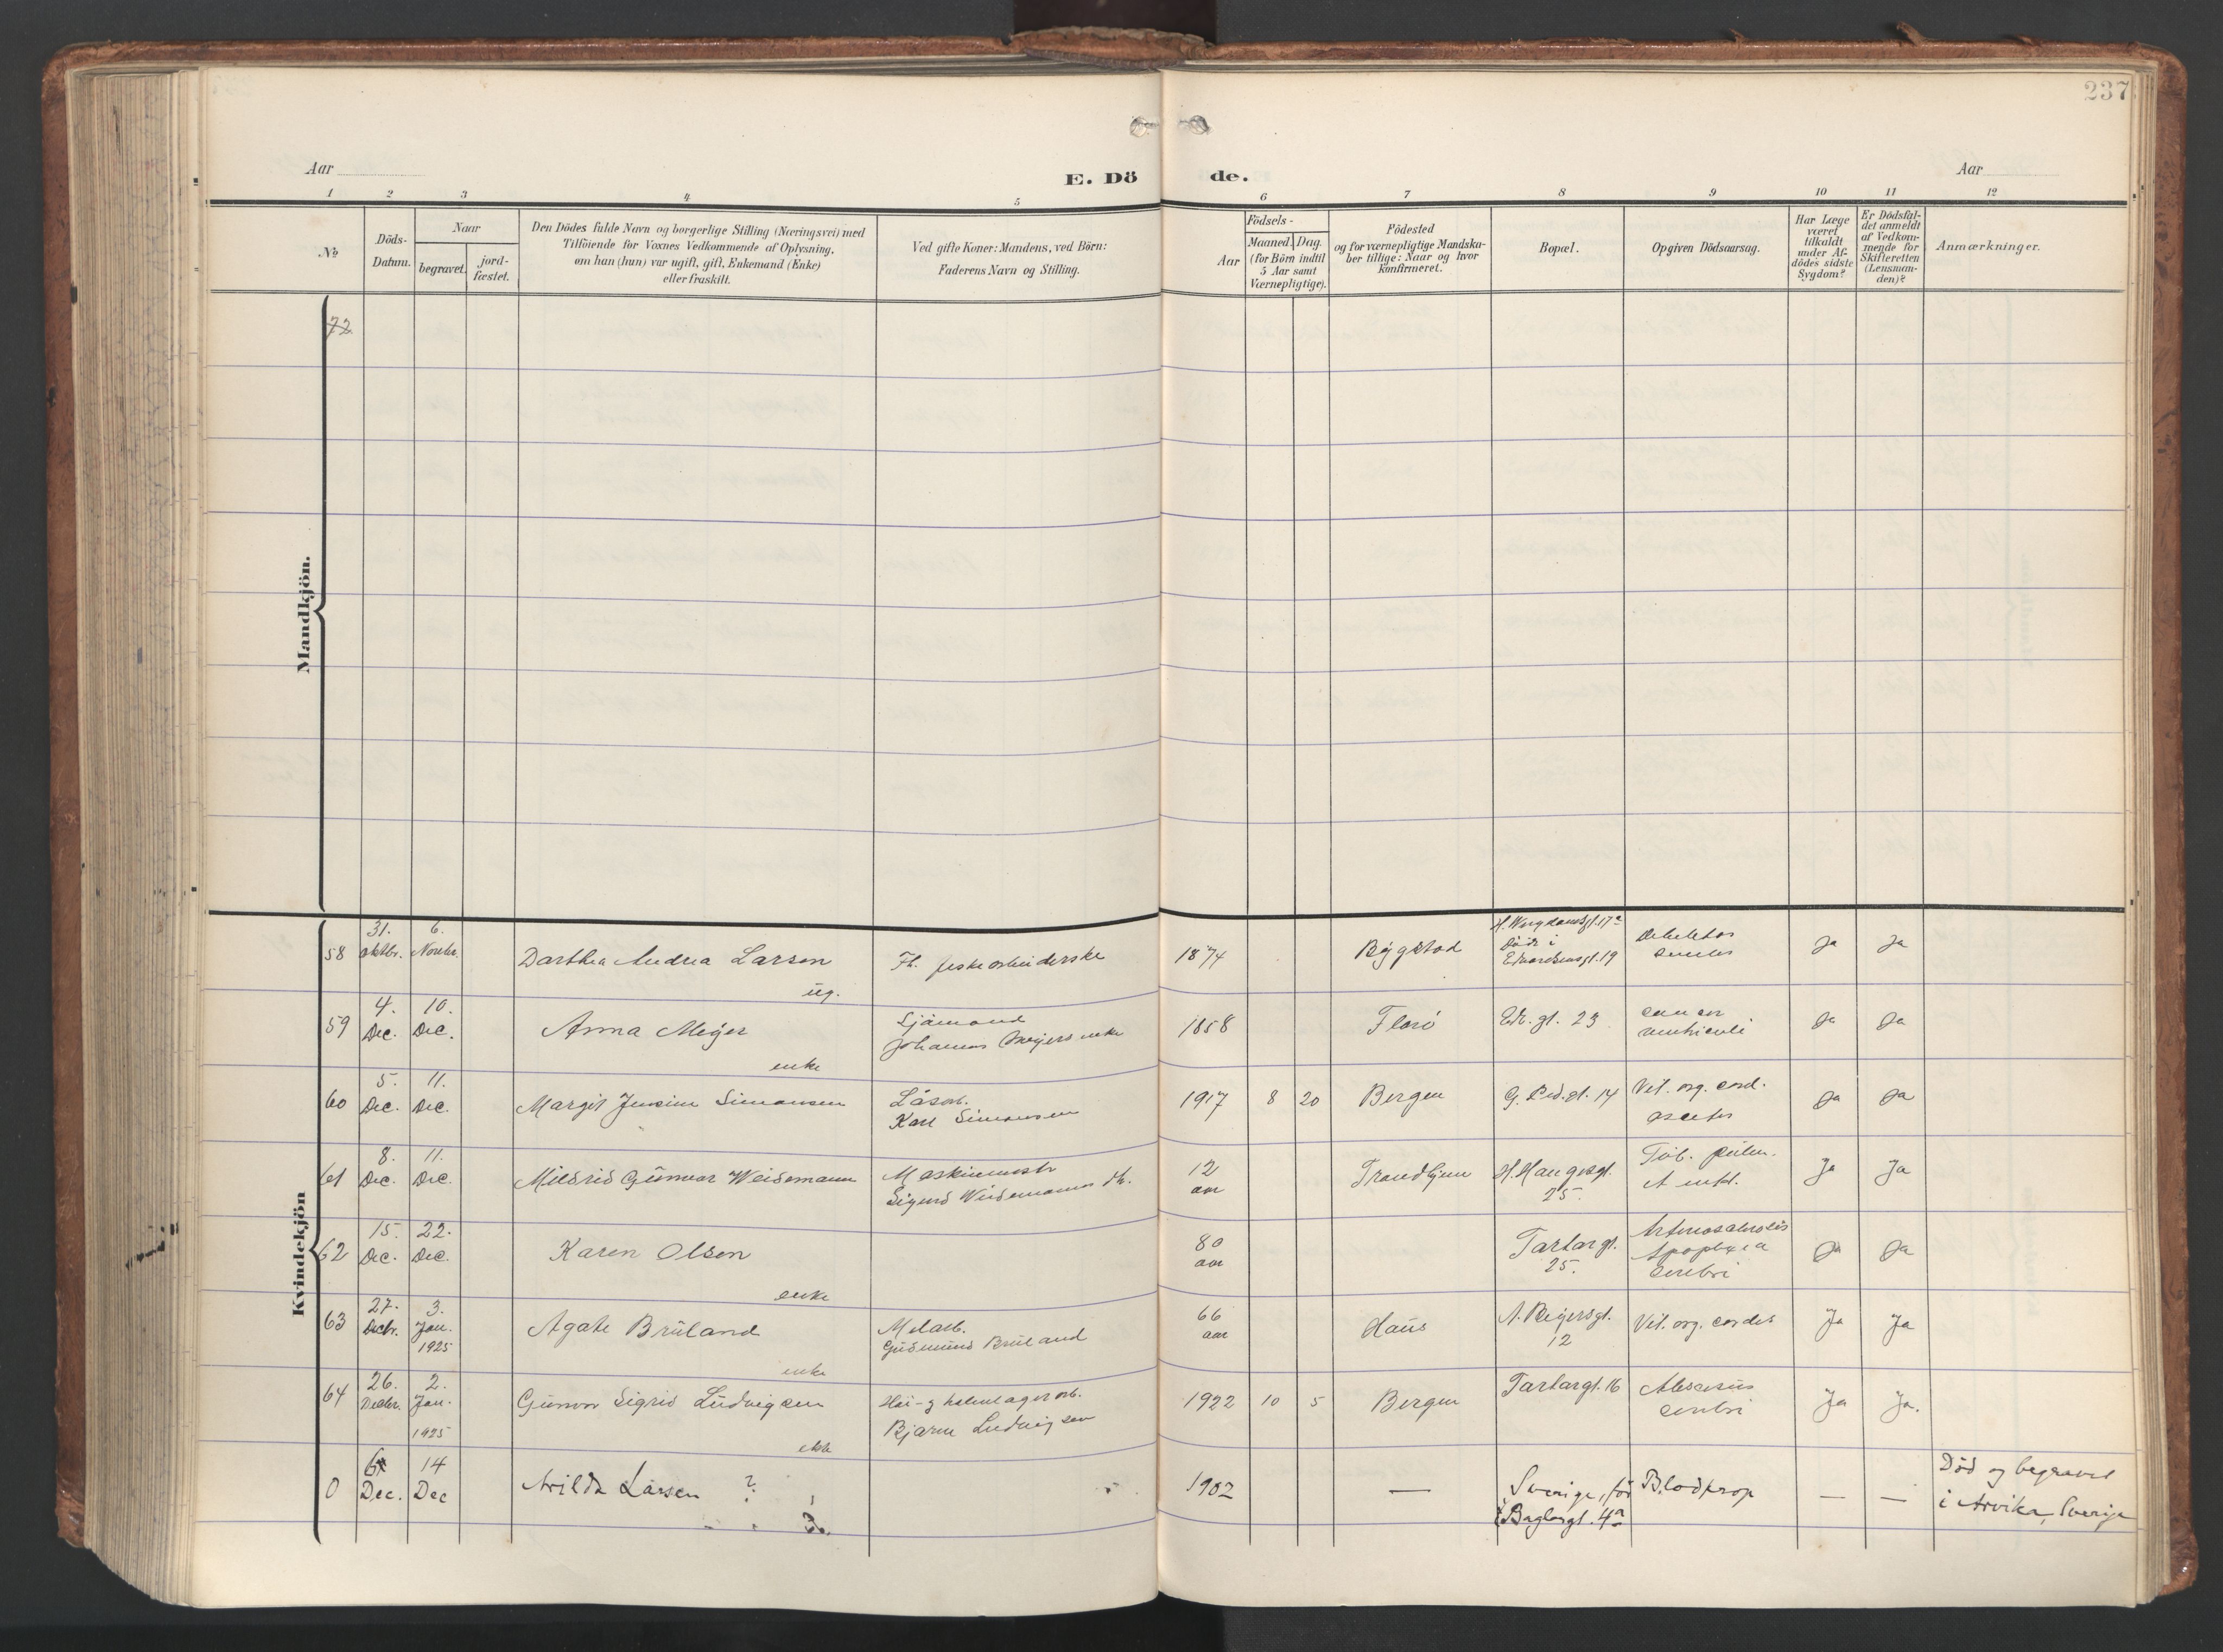 237
Aar
E. Dö de.
Aar
1 2 3 4 5 6 7 8 9 10 11 12
No
Döds-
Datum.
Naar
begravet.
jord-
fæstet.
Den Dödes fulde Navn og borgerlige Stilling (Næringsvei) med
Tilföiende for Voxnes Vedkommende af Oplysning,
om han (hun) var ugift, gift, Enkemand (Enke)
eller fraskilt.
Ved gifte Koner: Mandens, ved Börn:
Faderens Navn og Stilling.
Födsels-
Aar
Maaned. Dag.
(for Börn indtil
5 Aar samt
Værnepligtige).
Födested
og for værnepligtige Mandska-
ber tillige: Naar og hvor
konfirmeret.
Bopæl.
Opgiven Dödsaarsag.
Har Læge
været
tilkaldt
under Af-
dödes sidste
Sygdom?
Er Dödsfal-
det anmeldt
af Vedkom-
mende for
Skifteretten
(Lensman-
den)?
Anmærkninger.
Mandkjön.
72
Kvindekjön
58
31.
oktbr.
6.
Novbr.
Dorthea Andrea Larsen
ug.
Fh.
1874
Bygstad
17a
Död i
19
Ja
Ja
59
4.
Dec.
10.
Dec.
Anna Meyer
enke
Sjömand
Johannes Meyers enke
1858
Florö
Ed. gt. 23
cancer
ventriculi
Ja
Ja
60
5.
Dec.
11.
Dec.
Margit Jensine Simonsen
Karl Simonsen
1917
8
20
Bergen
14
Vit. org. cord.
Ja
Ja
61
8.
Dec.
11.
Dec.
Mildrid Gunvor Weidemann
Maskinmstr
Sigurd Weidemanns
12
aar
Trondhjem
H. Haugesgt.
25.
Tub. pulm.
Ja
Ja
62
15.
Dec.
22.
Dec.
Karen Olsen
enke
80
aar
Tartargt.
25.
Arteriosclerosis
Apoplexia
cerebri
Ja
Ja
63
27.
Decbr.
3.
Jan.
1925
Agate Bruland
enke
Gudmund Bruland
66
aar
Haus
12
Vit. org. cordis
Ja
Ja
64
26.
Decbr.
2.
Jan.
1925
Gunvor Sigrid Ludvigsen
ekte
Bjarne Ludvigsen
1922
10
5
Bergen
Tartargt. 16
Abscessus
cerebri
Ja
Ja.
0
Dec.
14
Dec
Arilda Larsen ?
1902
—
Sverige, för
Baglergt. 4a
Blodprop
—
—
Död og begravet
i Arvika, Sverige